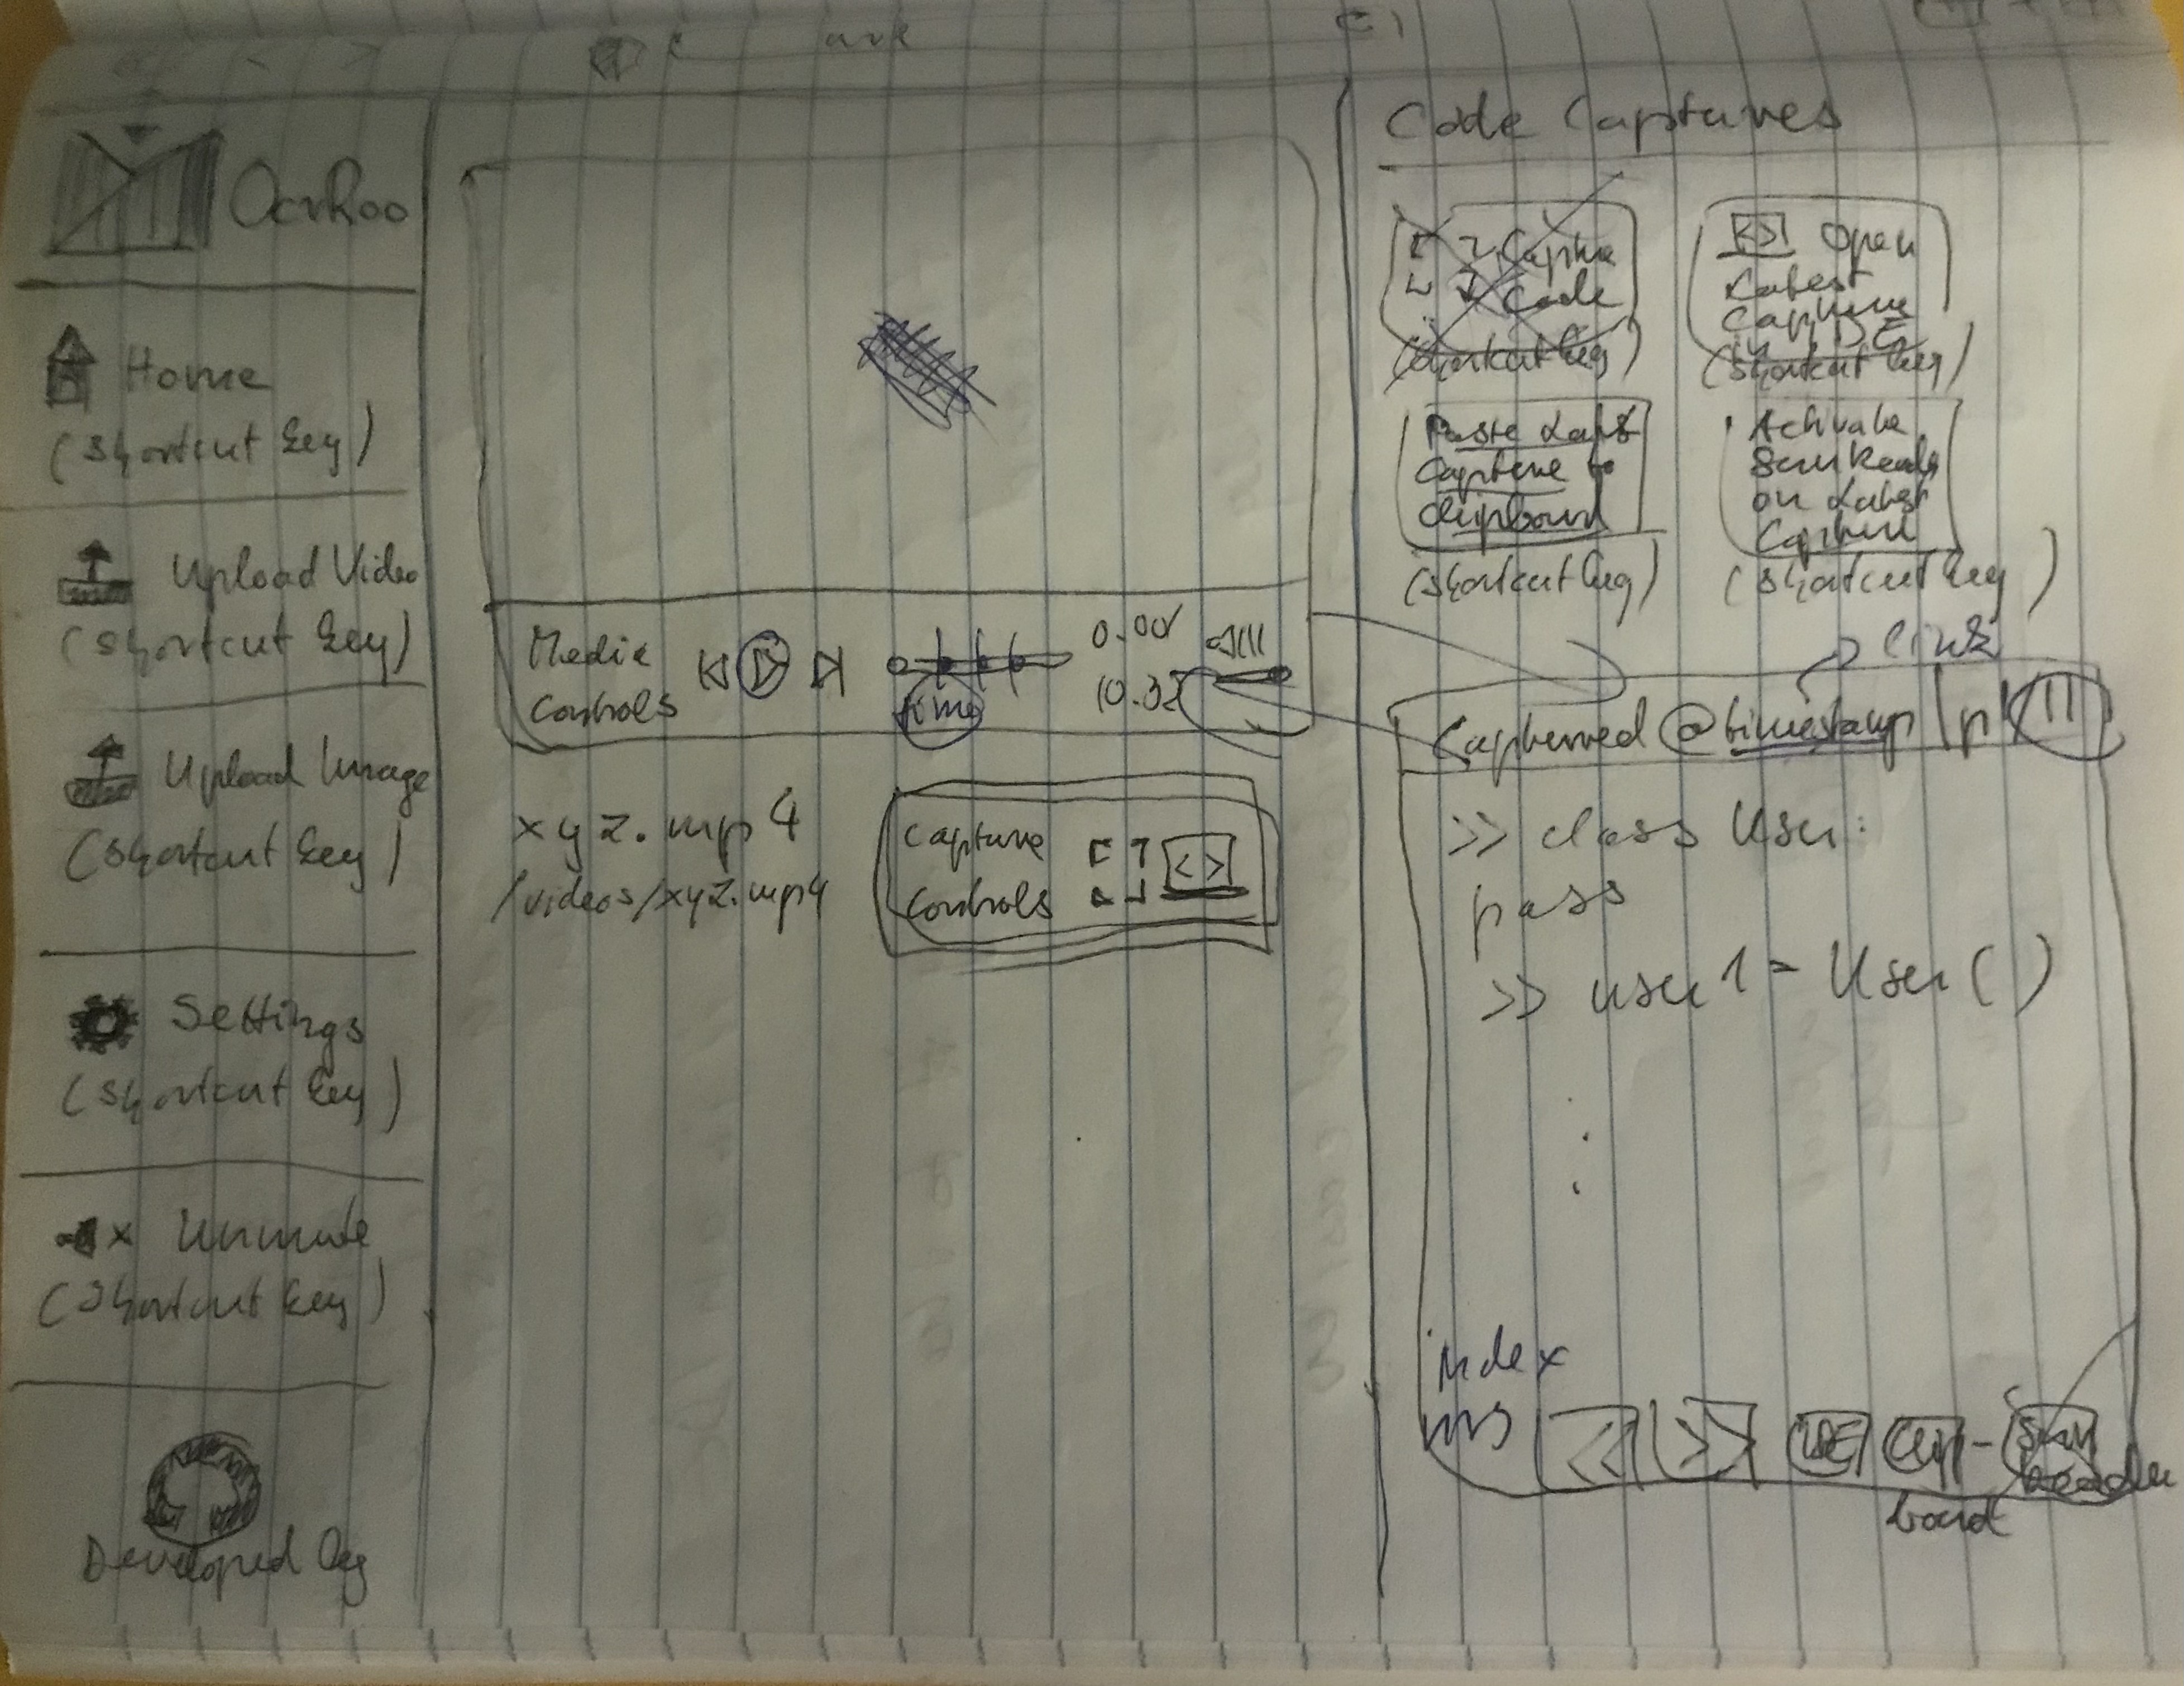 OcrRoo
Home
(shortcut key)
Upload Video
(shortcut key)
Upload Image
(shortcut key)
Settings
(shortcut key)
Unmute
(shortcut key)
Developed by
Media
Controls
time
0.00/
10.32
xyz.mp4
/videos/xyz.mp4
Capture
Controls
< >
Code Captures
Capture
Code
(shortcut key)
<> Open
Latest
Capture
in IDE
(shortcut key)
Paste Last
Capture to
Clipboard
(shortcut key)
Activate
on Latest
Capture
(shortcut key)
link
Captured @timestamp
>> class User:
pass
>> user1 = User()
index
<< >> IDE Clip-
board
Reader